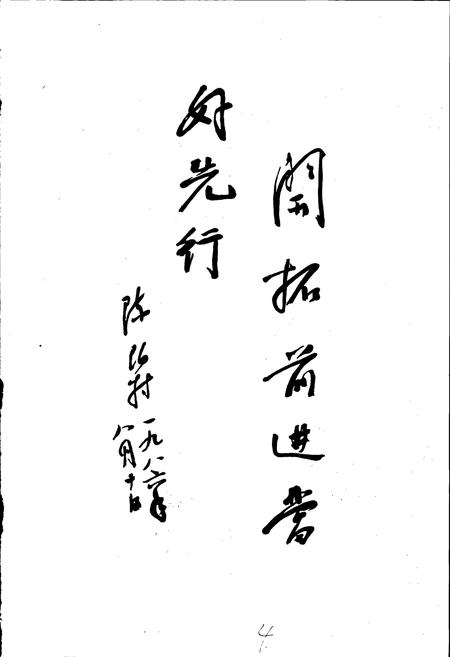 開拓前进當
好先行
陈伯村
一九八六年
八月十日
4